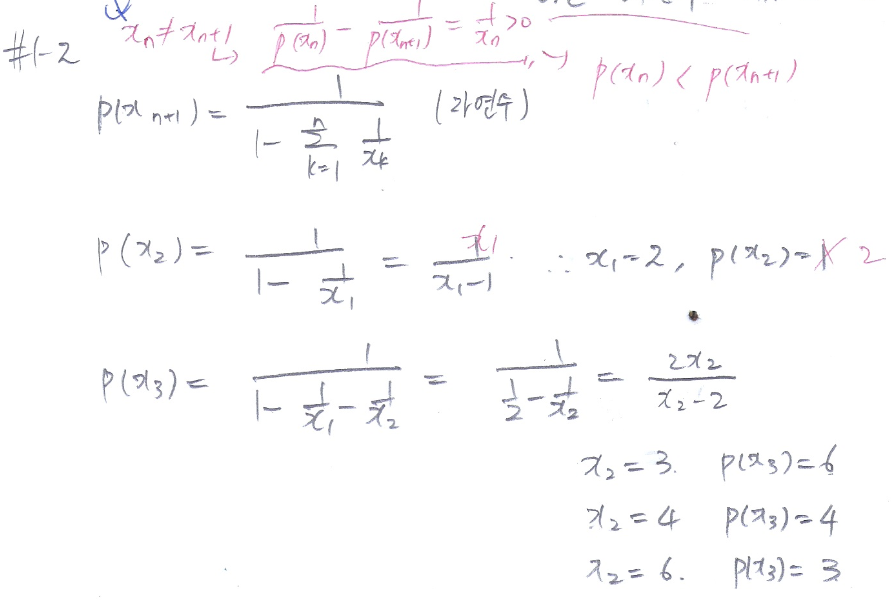 x_n ≠ x_{n+1} ↳ 1/p(x_n) - 1/p(x_{n+1}) = 1/x_n > 0
#1-2
p(x_n) < p(x_{n+1})
p(x_{n+1}) = 1/(1 - Σ_{k=1}^{n} 1/x_k) (자연수)
p(x_2) = 1/(1 - 1/x_1) = x_1/(x_1-1) ∴ x_1=2, p(x_2)= 2
p(x_3) = 1/(1 - 1/x_1 - 1/x_2) = 1/(1/2 - 1/x_2) = 2x_2/(x_2-2)
x_2 = 3. p(x_3)=6
x_2 = 4 p(x_3)=4
x_2 = 6. p(x_3)=3